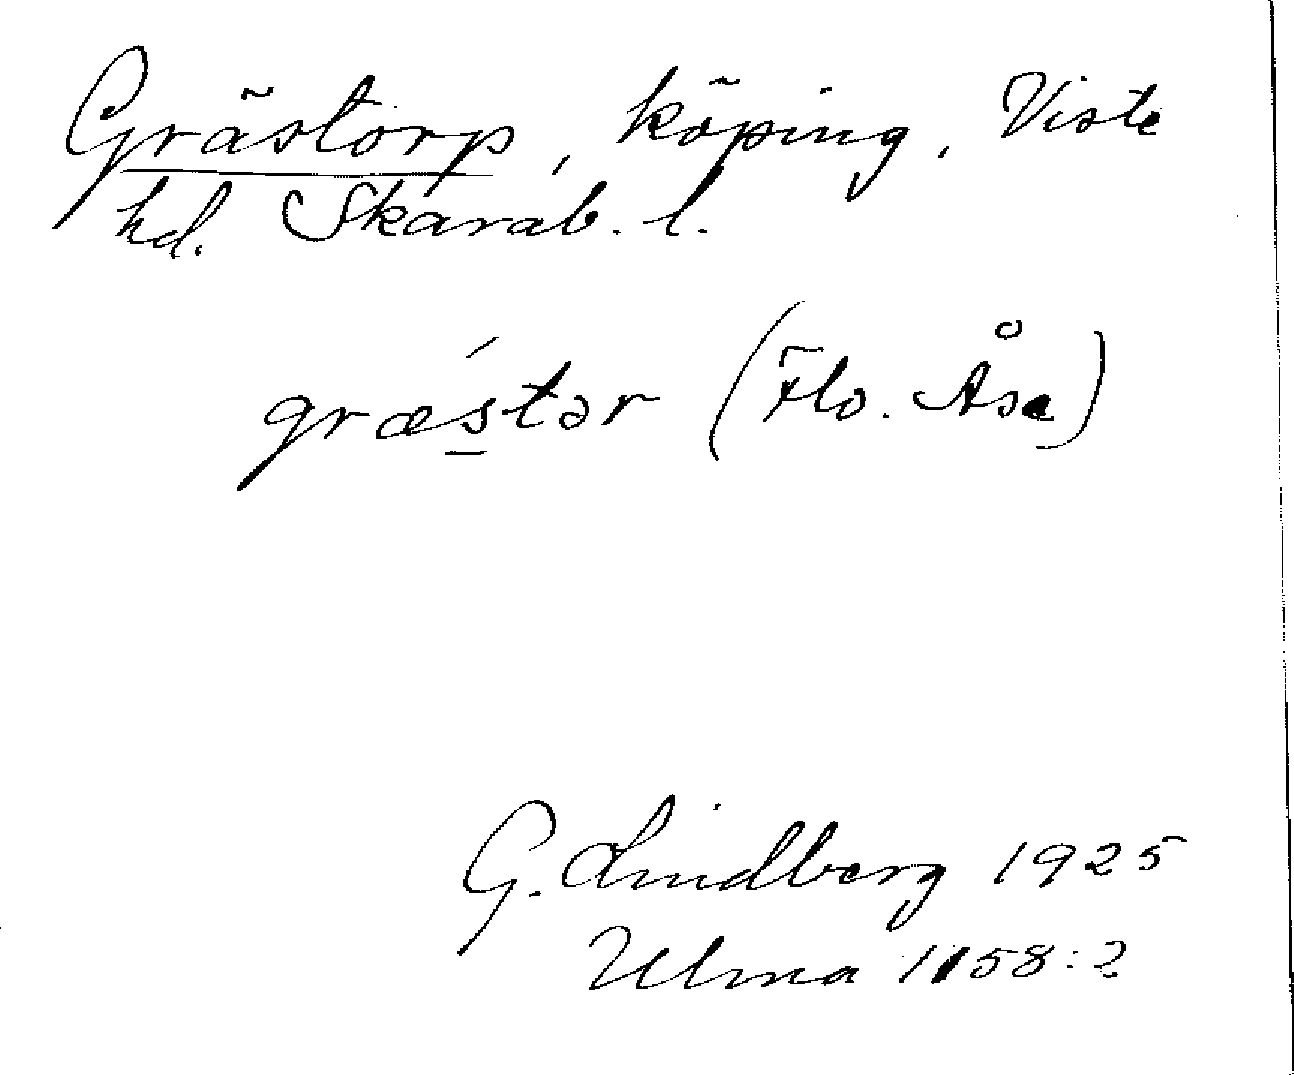 Grästorp, köping, Viste
hd. Skarab. l.
græ´s̲tər (Flo. Åse)
G. Lindberg 1925
Ulma 1158:2